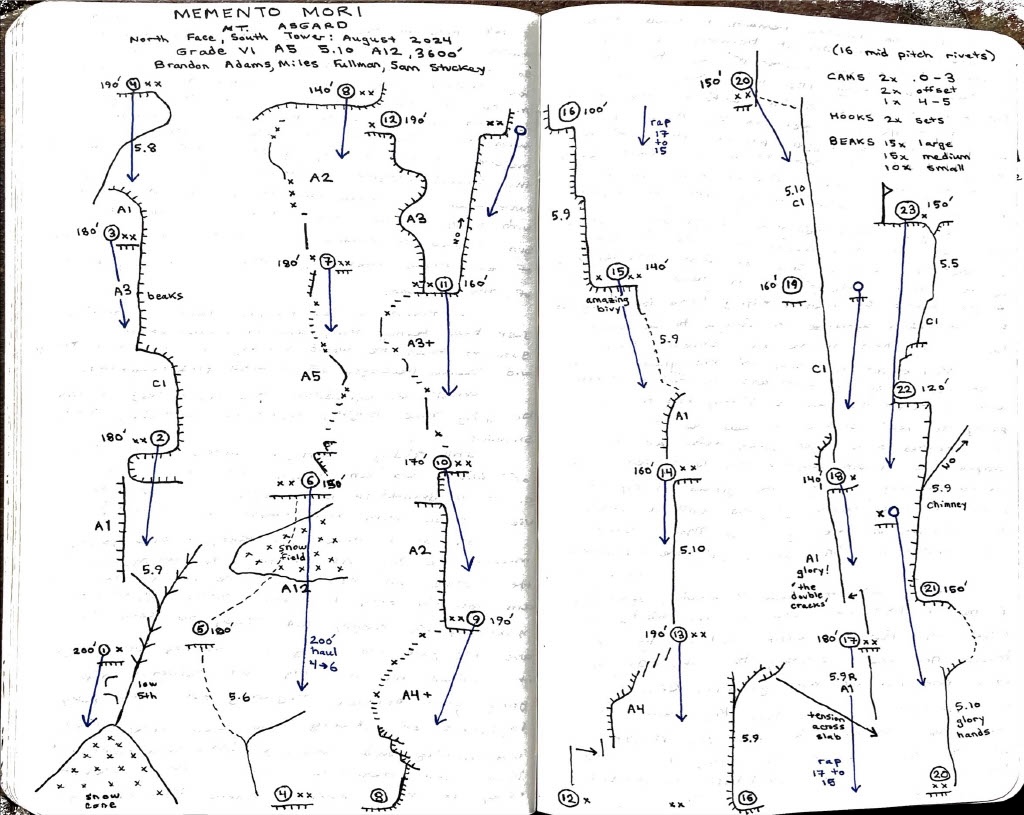 MEMENTO MORI
MT. ASGARD
North Face, South Tower: August 2024
Grade VI A5 5.10 AI2, 3600'
Brandon Adams, Miles Fullman, Sam Stuckey
190' 4 xx
5.8
A1
180' 3 xx
A3
beaks
C1
180' xx 2
A1
5.9
200' 1 x
low
5th
snow
cone
140' 8 xx
A2
180' 7 xx
A5
xx 6 150'
snow
field
AI2
5 180'
200'
haul
4→6
5.6
4 xx
x 12 190'
xx
A3
NO →
x x 11 160'
A3+
170' 10 xx
A2
xx 9 190'
A4+
8
16 100'
rap
17
to
15
5.9
x 15 xx 140'
amazing
bivy
5.9
A1
160' 14 xx
5.10
190' 13 xx
A4
12 x
xx
150' 20
xx
5.10
C1
160' 19
C1
140' 18
xx
A1
glory!
"the
double
cracks"
180' 17 xx
5.9R
A1
tension
across
slab
5.9
rap
17 to
15
16
(16 mid pitch rivets)
CAMS 2x .0-3
2x offset
1x 4-5
HOOKS 2x sets
BEAKS 15x large
15x medium
10x small
23 x 150'
5.5
C1
22 120'
NO →
5.9
chimney
x
21 150'
5.10
glory
hands
20
xx